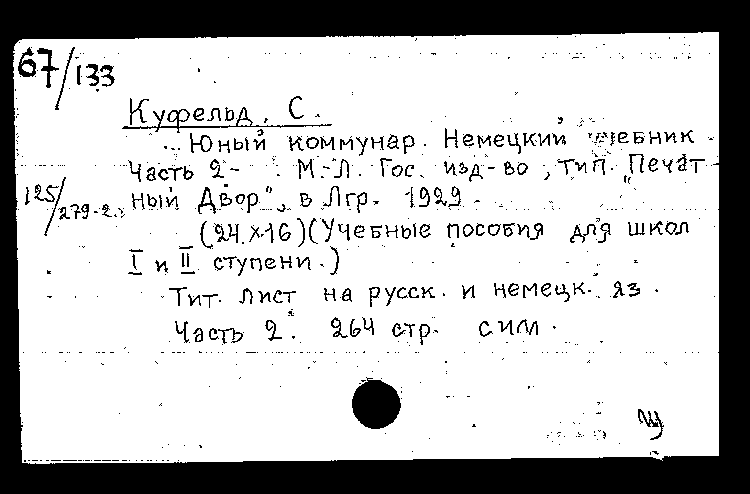 67/133
Куфельд. С.
Юный коммунар. Немецкий учебник.
Часть 2- . М.-Л. Гос. изд-во, тип. „Печат-
125/279-2.
ный Двор", в Лгр. 1929.
(24.×16)(Учебные пособия для школ
I и II ступени.)
Тит. лист на русск. и немецк. яз.
Часть 2. 264 стр. с илл.